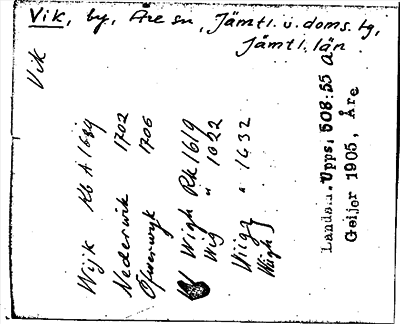 Vik, by, Åre sn, Jämtl. v. doms. tg,
Jämtl. län.
Vik
Wijk Kb A 1649
Nederwik 1702
Öfwerwyk 1706
Wigh Rk 1619
Wig " 1622
Wiigg " 1632
Wigh
Landsm. Upps. 508:55 a.
Geijer 1905, Åre